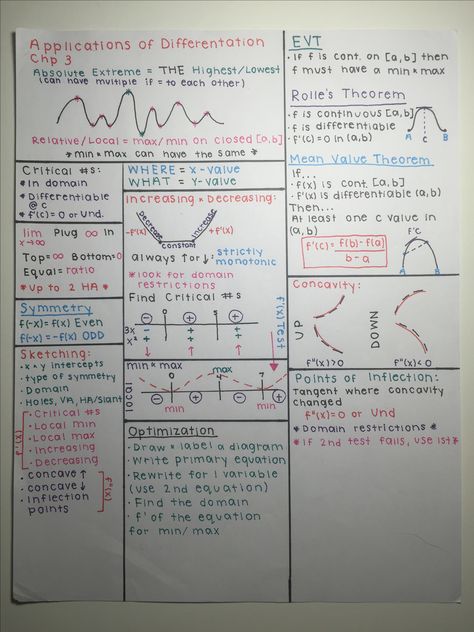 Applications of Differentation
Chp 3
Absolute Extreme = THE Highest/Lowest
(can have multiple if = to each other)
Relative/Local = max/min on closed [a,b]
* min * max can have the same *
Critical #s:
* In domain
* Differentiable @ c
* f'(c)=0 or und.
lim x→∞ Plug ∞ in
Top=∞ Bottom=0
Equal= ratio
* Up to 2 HA *
Symmetry
f(-x)=f(x) Even
f(-x)=-f(x) ODD
Sketching:
• x * y intercepts
• type of symmetry
• Domain
• Holes, VA, HA/Slant
• Critical #s
• Local min
• Local max
• Increasing
• Decreasing
f'(x)
• concave ↑
• concave ↓
• Inflection points
f"(x)
WHERE = x-value
WHAT = Y-value
Increasing * Decreasing:
-f'(x)
Decrease
constant
increase
+f'(x)
always ↑ or ↓: strictly monotonic
*look for domain restrictions
Find Critical #s
f'(x) Test
0 5
- + +
3x - + +
x² + + +
min * max
local
0 4 7
max
- + - +
min min
Optimization
• Draw * label a diagram
• Write primary equation
• Rewrite for 1 variable
(use 2nd equation)
• Find the domain
• f' of the equation
for min/max
EVT
• If f is cont. on [a,b] then
f must have a min * max
Rolle's Theorem
• f is continuous [a,b]
• f is differentiable
• f'(c)=0 in (a,b)
A C B
Mean Value Theorem
If...
• f(x) is cont. [a,b]
• f'(x) is differentiable (a,b)
Then...
At least one c value in
(a,b)
f'(c)= f(b)-f(a)
b-a
f'c
A B
Concavity:
UP
f"(x)>0
DOWN
f"(x)<0
Points of Inflection:
Tangent where concavity
changed
f"(x)=0 or Und
* Domain restrictions *
* If 2nd test fails, use 1st *